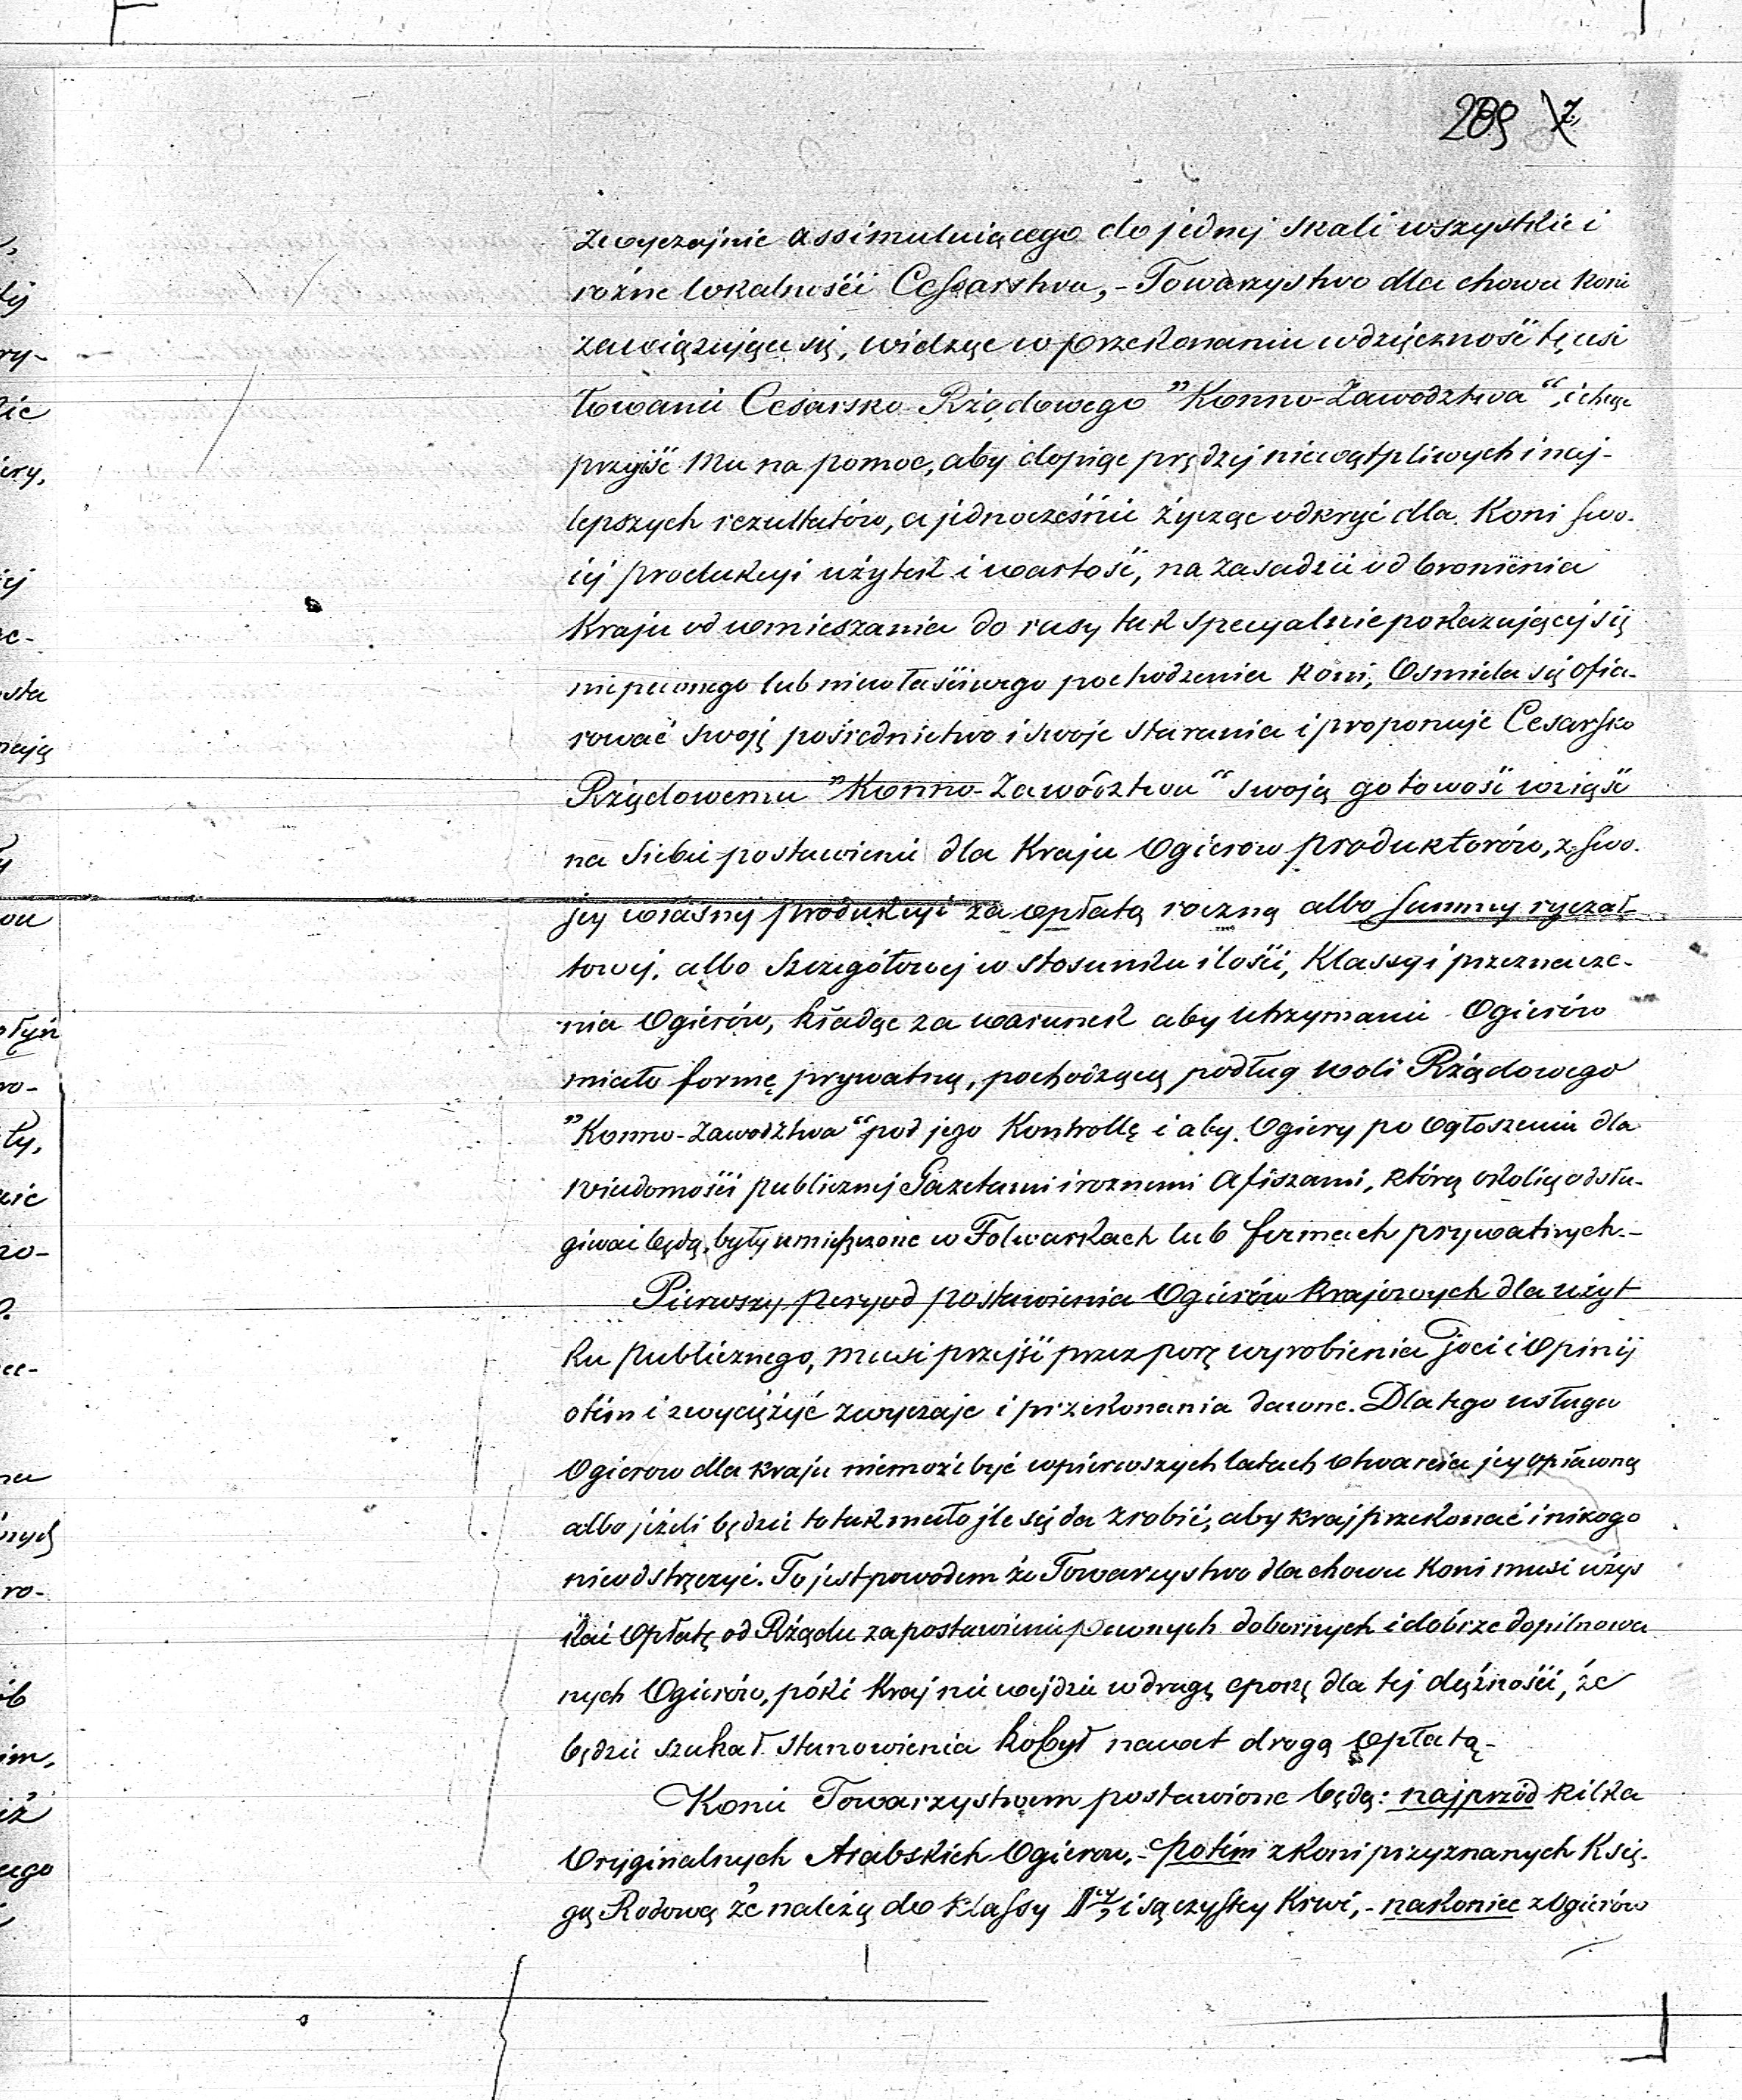 289
zwyczajnie assimuluiącego do jednej skali wszystkie i
rózne lokalności Cessarstwa, - Towarzystwo dla chowu koni
zawiązujące się, widząc w przekonaniu wdzięczność tę usi
łowanii Cesarsko Rządowego "Konno-Zawodztwa", i chcąc
przyiść mu na pomoc, aby dopiąc prędzej niewątpliwych i naj-
lepszych rezultatów, a jednocześnie życząc odkryć dla Koni swo-
iej produkcyi użytek i wartość, na zasadzie od bronienia
Kraju od wmieszania do rasy tak specyalnie pokazującej się
niepewnego lub niewłaściwego pochodzenia koni, Osmiela się ofia-
rować swoję pośrednictwo i swoje starania i proponuje Cesarsko
Rządowemu "Konno-Zawództwu" swoją gotowość wziąść
na siebie postawienie dla Kraju Ogierow produktorów, z swo-
jey własnej produkcyi za wpłatą roczną albo summy ryczał-
towej, albo Szczegółowej w stosunku ilości, Klassy i przeznacze-
nia Ogierów, kładąc za warunek aby utrzymanie Ogierów
miało formę prywatną, pochodzącą podług woli Rządowego
"Konno-Zawodztwa" pod jego Kontrollę i aby Ogiery po Ogłoszeniu dla
wiadomości publicznej Gazetami i roznemi Afiszami, którą okolicę obsłu-
giwać będą, były umieszczone w Folwarkach lub fermach prywatnych.-
Pierwszy peryod postawienia Ogierów Krajowych dla użyt
ku publicznego, musi przejść przez porę wyrobienia Jeci i Opinij
otém i zwyciężyć zwyczaje i przekonania dawne. Dlatego usługa
Ogierow dla kraju niemoże być wpierwszych latach otwarcia jey opławną
albo jeżeli będzie to tak mało jle się da zrobić, aby kraj przekonać i nikogo
nieodstręczyć. To jest powodem że Towarzystwo dla chowu Koni musi uzys
kać Opłatę od Rządu za postawienie pewnych dobornych i dobrze dopilnowa
nych Ogierów, póki Kraj nie wejdzie w drugę epokę dla tej dążności, że
będzie szukał stanowienia kobył nawet drogą Opłatą-
Konie Towarzystwem postawione będą: najprzód kilka
Oryginalnych Arabskich Ogierow,- potém z koni przyznanych Księ-
gą Rodową że należą do klassy I cy i są czystey Krwi,- nakoniec z Ogierów